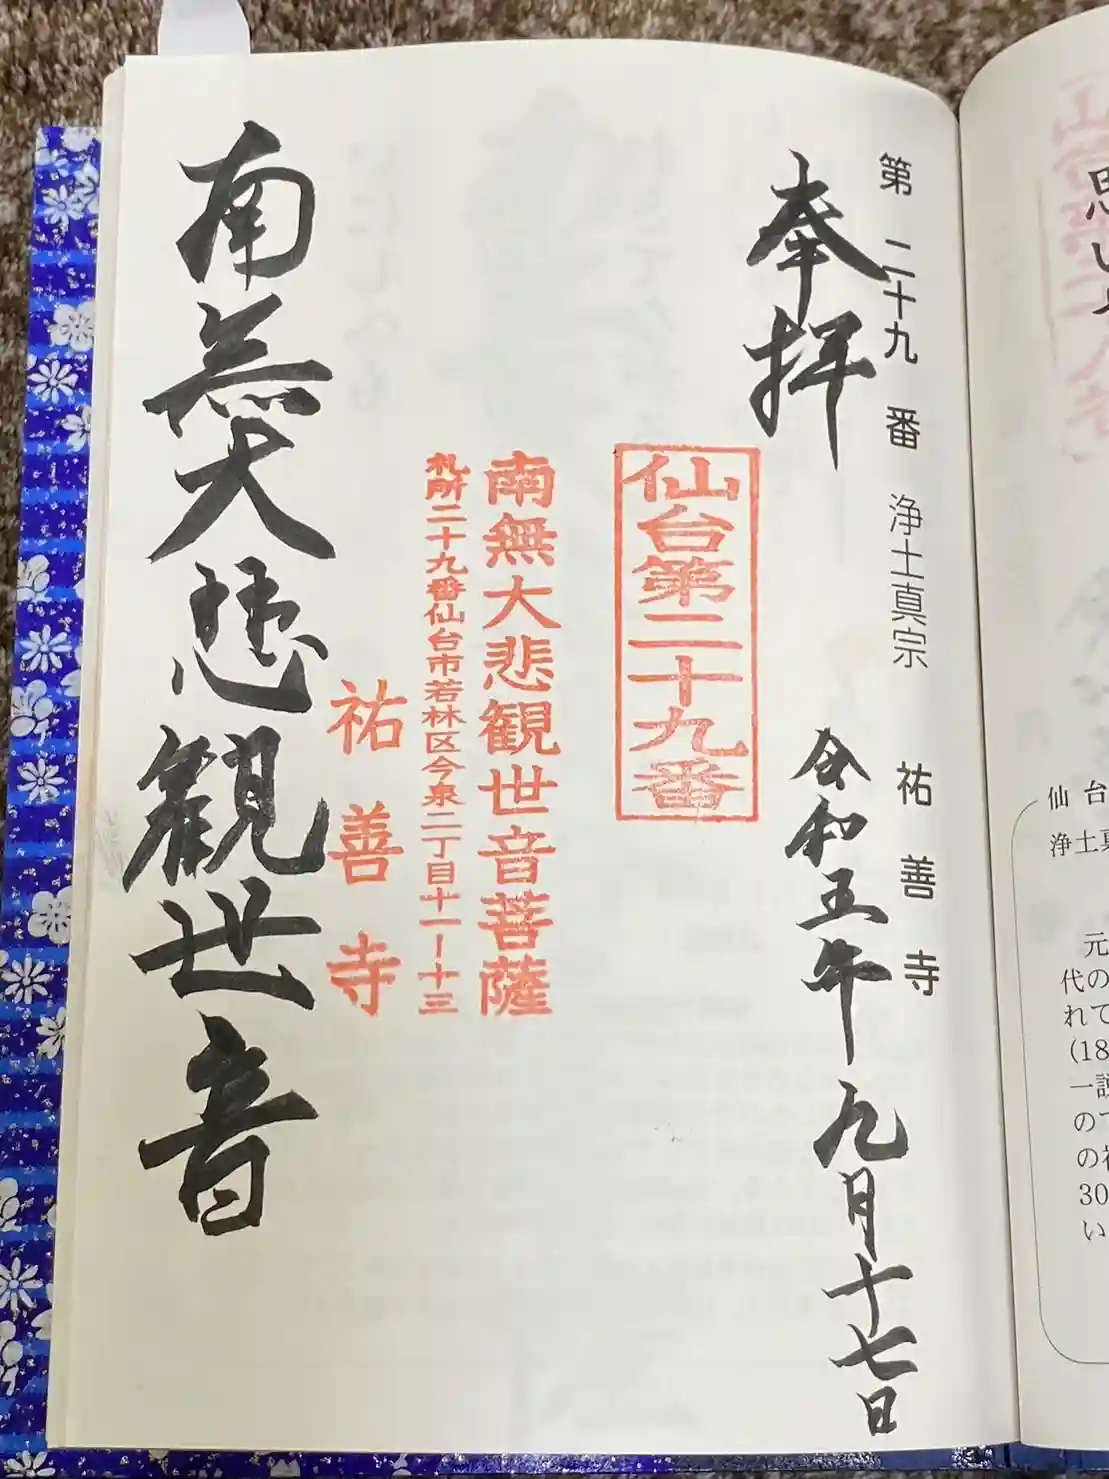 第二十九番 浄土真宗 祐善寺
奉拝
令和五年九月十七日
仙台第二十九番
南無大悲観世音菩薩
札所二十九番仙台市若林区今泉二丁目十一ー十三
祐善寺
南無大悲観世音
思い
仙台
浄土真
元
代の
れて
(18
一説
ので
の初
30
い